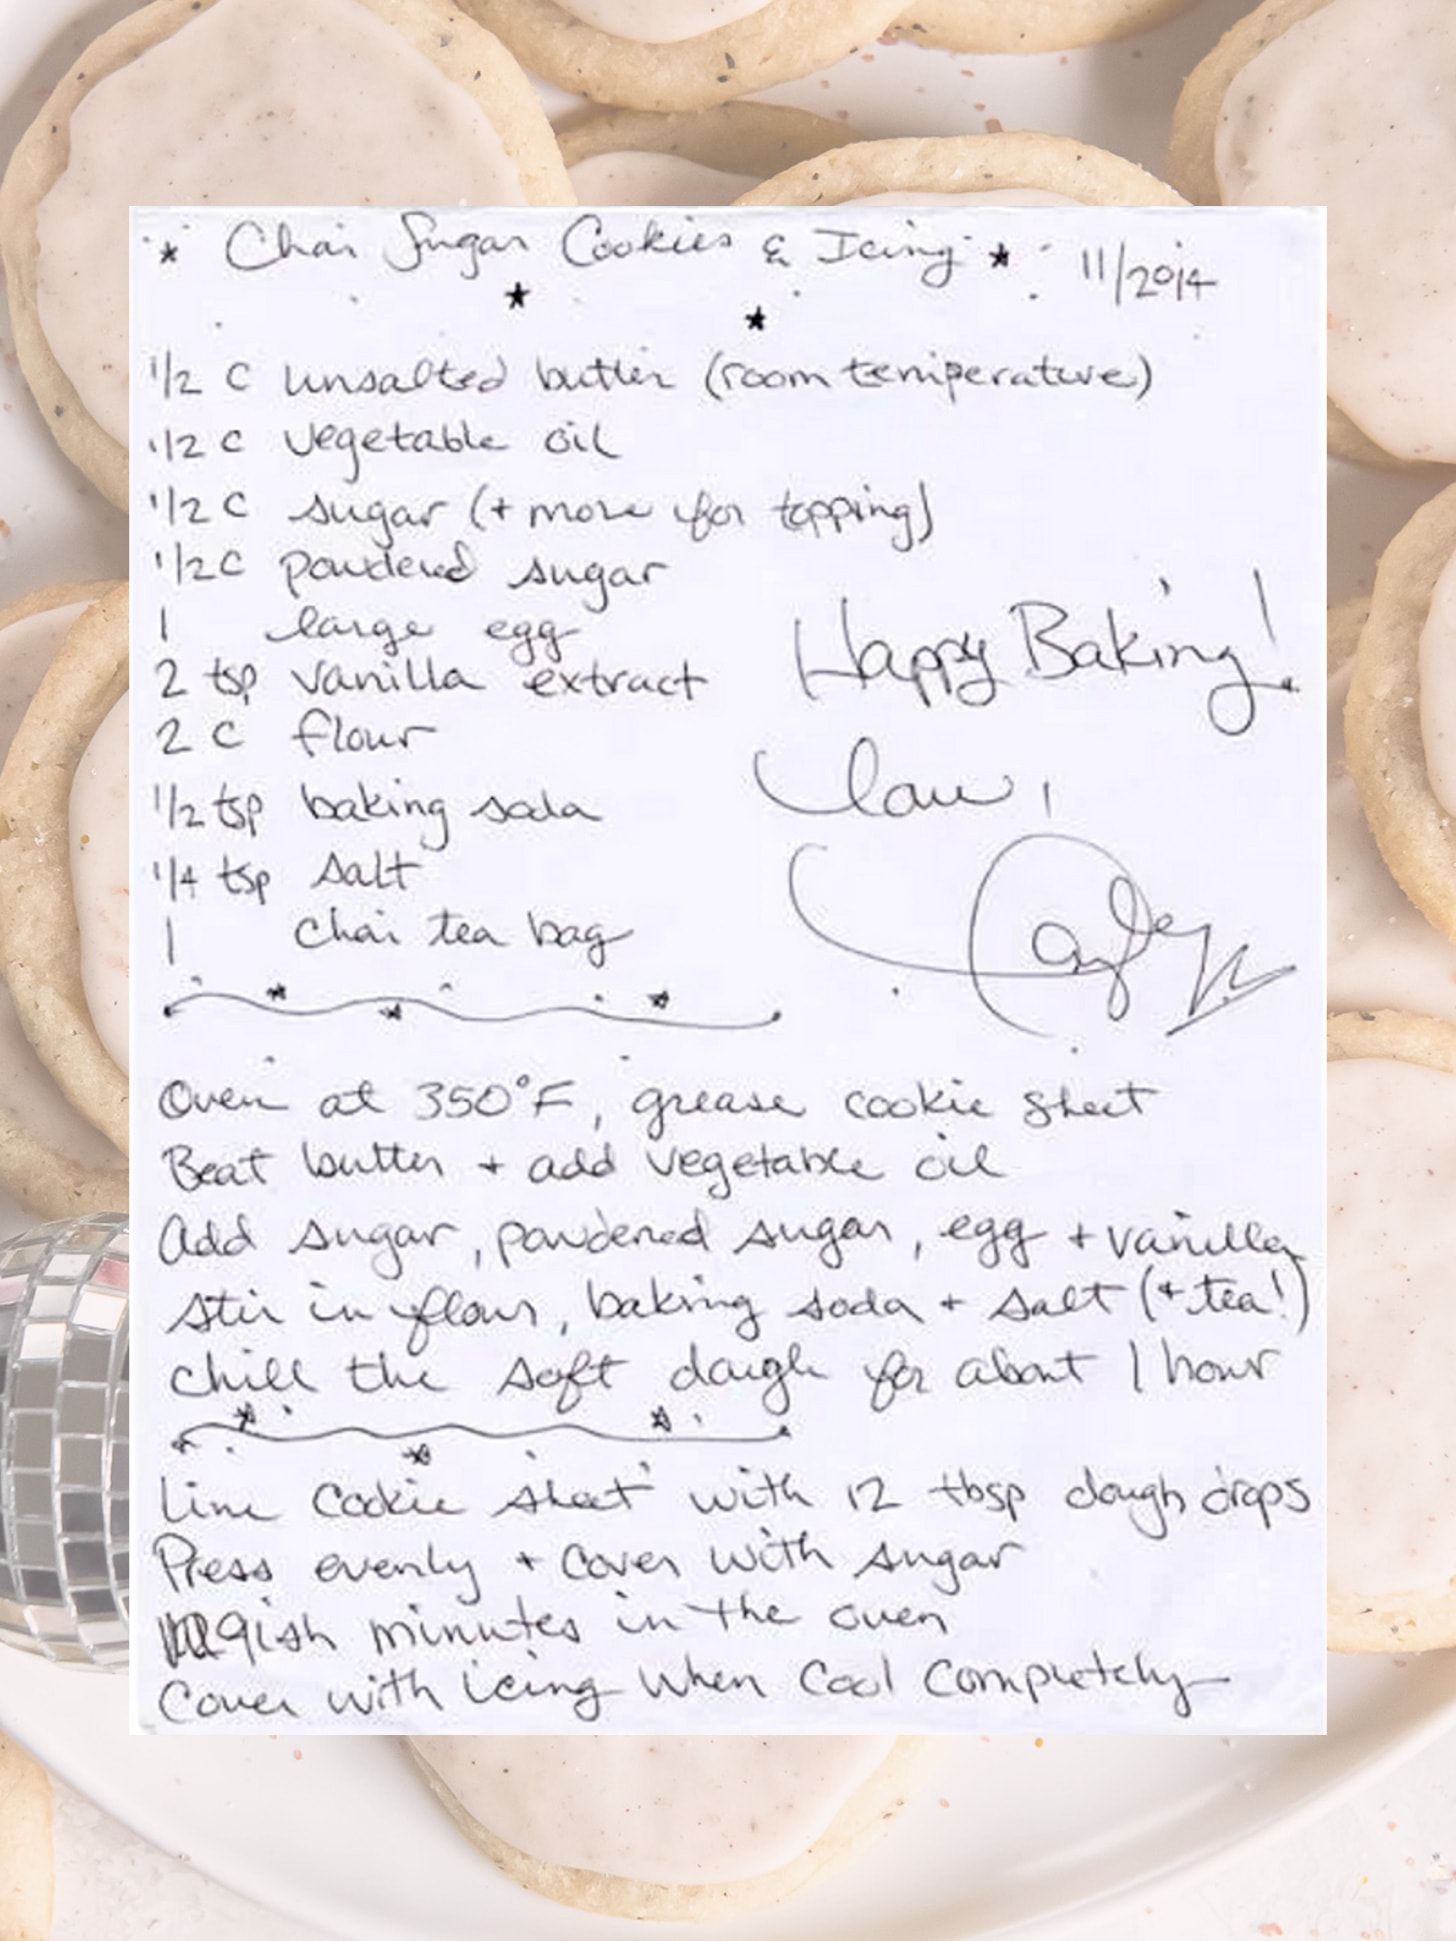 Chai Sugar Cookies & Icing 11/2014
1/2 C unsalted butter (room temperature)
1/2 C vegetable oil
1/2 C sugar (+ more for topping)
1/2 C powdered sugar
1 large egg
2 tsp vanilla extract
2 C flour
1/2 tsp baking soda
1/4 tsp salt
1 chai tea bag
Happy Baking!
Love,
Oven at 350°F, grease cookie sheet
Beat butter + add vegetable oil
Add sugar, powdered sugar, egg + vanilla
Stir in flour, baking soda + salt (+ tea!)
Chill the soft dough for about 1 hour
Line cookie sheet with 12 tbsp dough drops
Press evenly + cover with sugar
9ish minutes in the oven
Cover with icing when cool completely